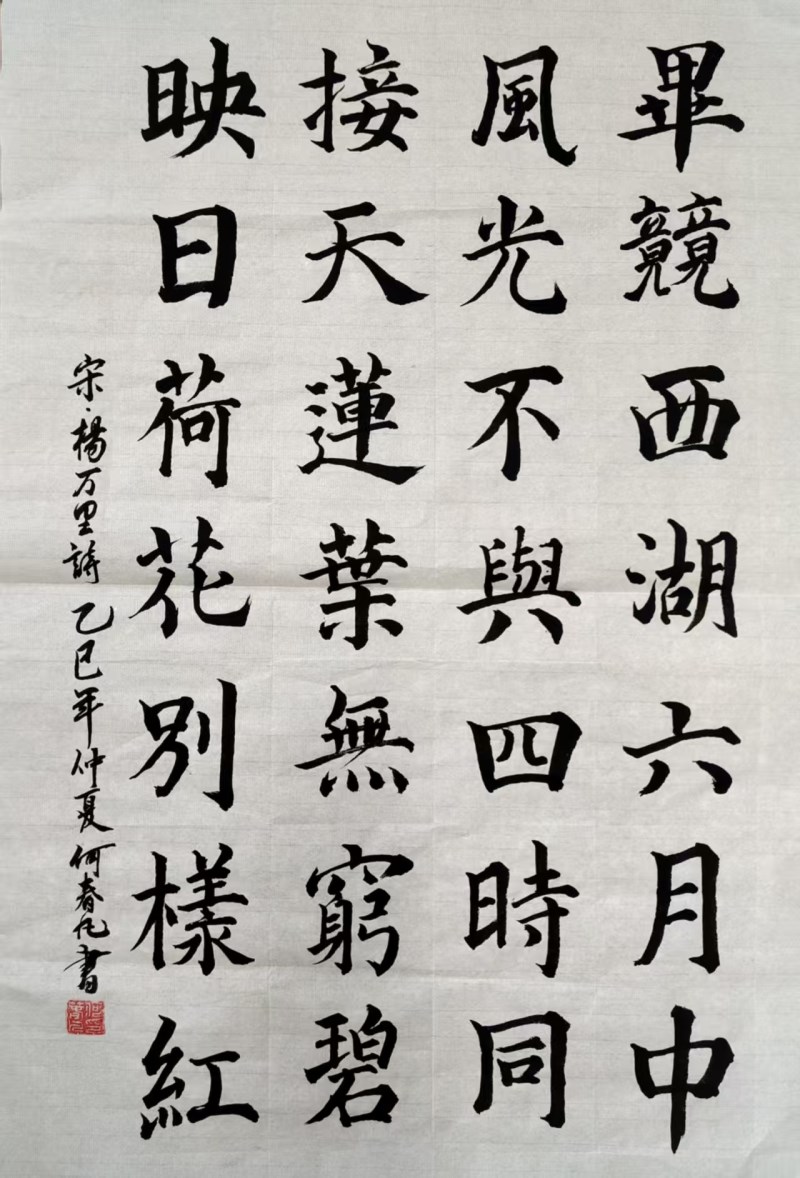 畢競西湖六月中
風光不與四時同
接天蓮葉無窮碧
映日荷花別樣紅
宋·楊万里詩 乙巳年仲夏何春凡書